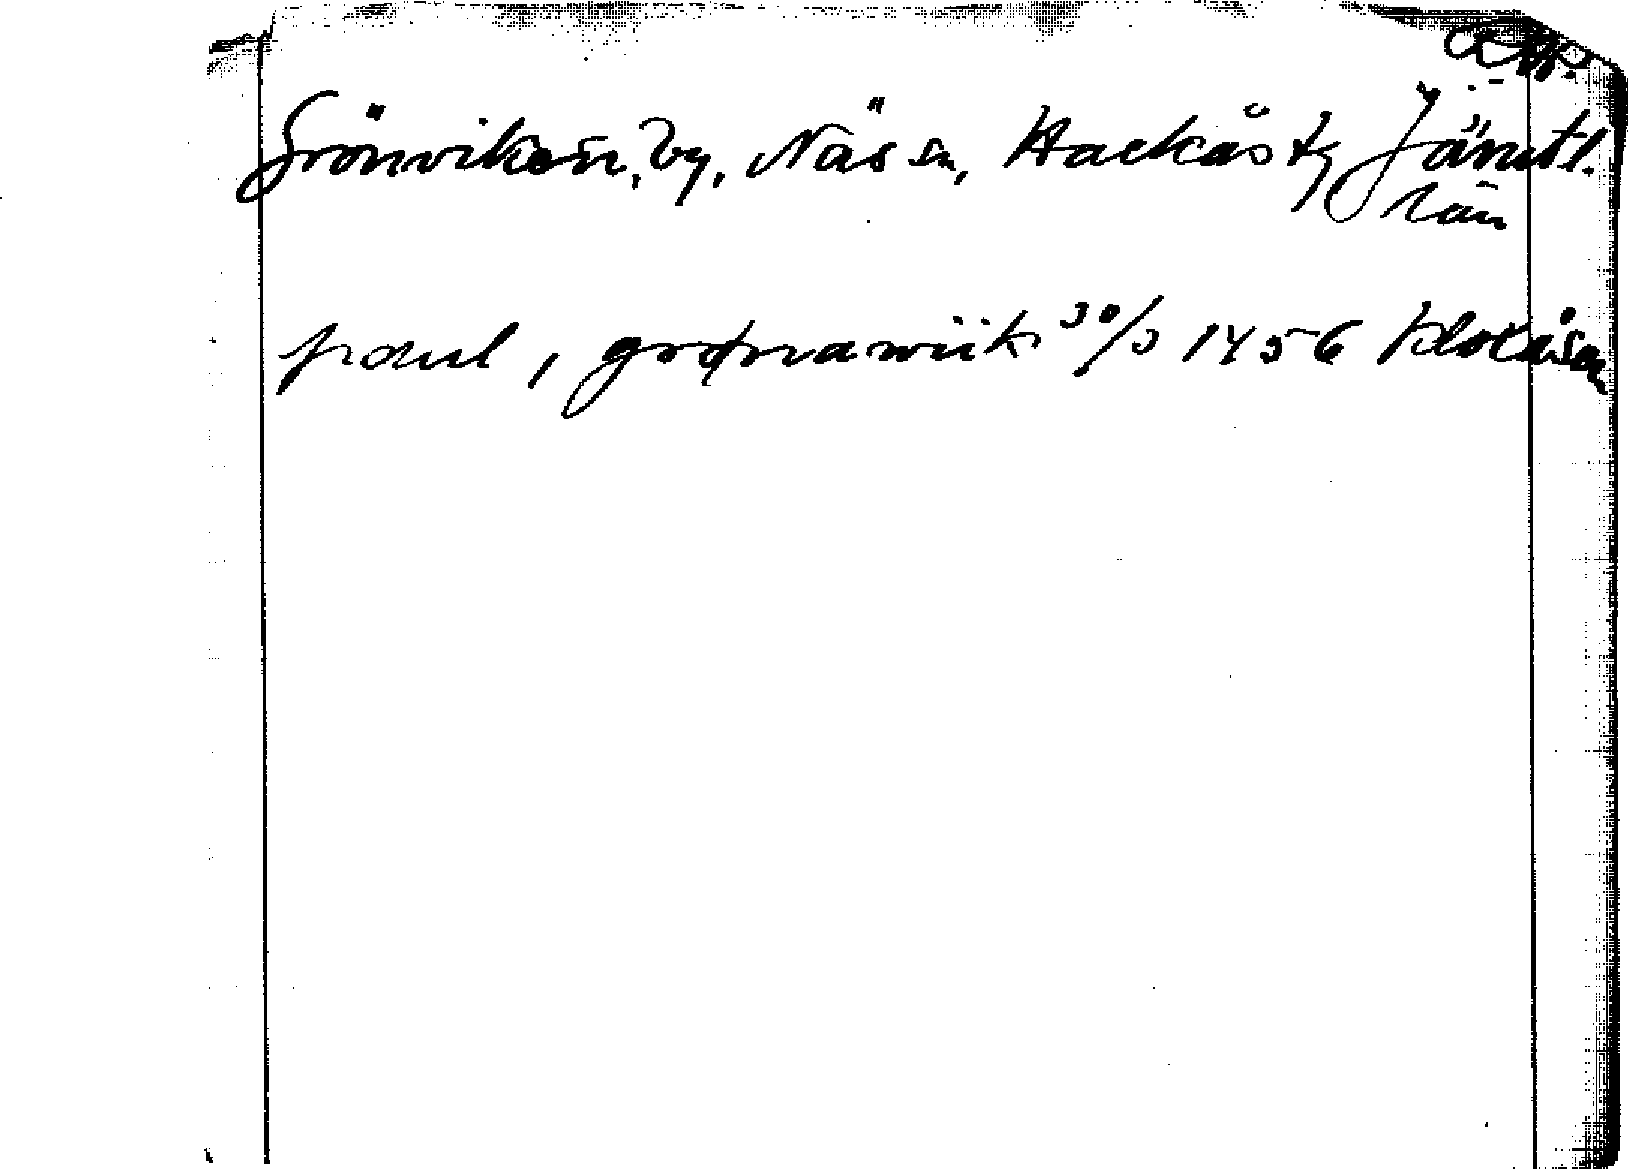 Grönviken, by, Näs sn, Hackås tg Jämtl.
län
paul, i grønawiik 30/3 1456 Klocåsen